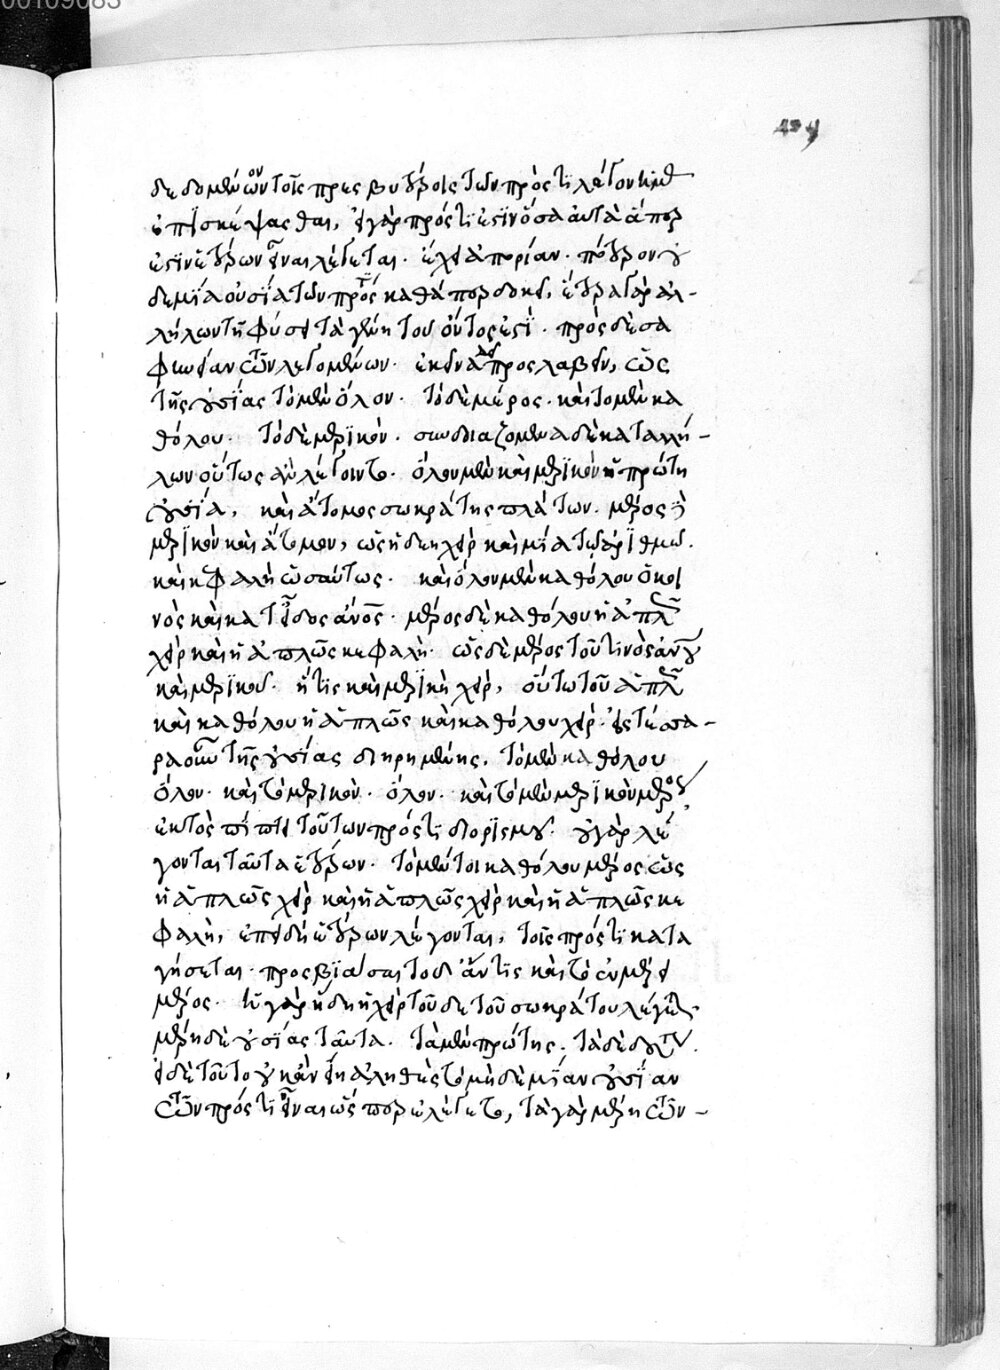 00109083
δεδομένων οὖν τοῖς πρεσβυτέροις τῶν πρός τι λεγομένων
ἐπισκέψασθαι, εἰ γὰρ πρός τι ἐστὶν ὅσα αὐτὰ ἅπερ
ἐστὶν ἑτέρων εἶναι λέγεται. ἔχει ἀπορίαν. πότερον οὐ
δεμία οὐσία τῶν πρός τι καθάπερ δοκεῖ, ἕτερα γὰρ ἀλ-
λήλων τῇ φύσει τὰ γένη τοῦ ὄντος ἐστί. πρὸς δὲ σα
φήνειαν τῶν λεγομένων. ἐκεῖνα δεῖ προσλαβεῖν, ὡς
τῆς οὐσίας τὸ μὲν ὅλον. τὸ δὲ μέρος. καὶ τὸ μὲν κα
θόλου. τὸ δὲ μερικόν. συνδυαζόμενα δὲ κατ' ἀλλή-
λων οὕτως ἂν λέγοιντο. ὅλον μὲν καὶ μερικὸν ἡ πρώτη
οὐσία, καὶ ἄτομος σωκράτης πλάτων. μέρος δὲ
μερικὸν καὶ ἄτομον, ὡς ἡ δε ἡ χεὶρ καὶ μία τῷ ἀριθμῷ.
καὶ κεφαλὴ ὡσαύτως. καὶ ὅλον μὲν καθόλου ὁ κοι
νὸς καὶ κατ' εἶδος ἄνος. μέρος δὲ καθόλου ἡ ἁπλῶς
χεὶρ καὶ ἡ ἁπλῶς κεφαλή. ὡς δὲ μέρος τοῦ τινὸς ἀνου
καὶ μερικοῦ. ἥ τις καὶ μερικὴ χείρ, οὕτω τοῦ ἁπλῶς
καὶ καθόλου ἡ ἁπλῶς καὶ καθόλου χείρ. εἰς τέσσα-
ρα οὖν τῆς οὐσίας διῃρημένης, τὸ μὲν καθόλου
ὅλον. καὶ τὸ μερικὸν. ὅλον. καὶ τὸ μὲν μερικὸν μέρος
ἐκτὸς πίπτει τοῦ τῶν πρός τι διορισμοῦ. οὐ γὰρ λέ
γονται ταῦτα ἑτέρων. τὸ μέντοι καθόλου μέρος ὡς
ἡ ἁπλῶς χεὶρ καὶ ἡ ἁπλῶς χεὶρ καὶ ἡ ἁπλῶς κε
φαλή, ἐπειδὴ ἑτέρων λέγονται, τοῖς πρός τι κατα
γήσεται. προσβιάσαιτο δ' ἄν τις καὶ τὸ ἐν μέρει
μέρος. ἡ γὰρ ἥδε ἡ χεὶρ τοῦδε τοῦ σωκράτους λέγεται
μέρη δὲ οὐσίας ταῦτα. τὰ μὲν πρώτης. τὰ δὲ δευτέρας.
εἰ δὲ τοῦτο οὐκ ἂν εἴη ἀληθὲς τὸ μηδεμίαν οὐσίαν
τῶν πρός τι εἶναι ὥσπερ ἐλέγετο, τὰ γὰρ μέρη τῶν-